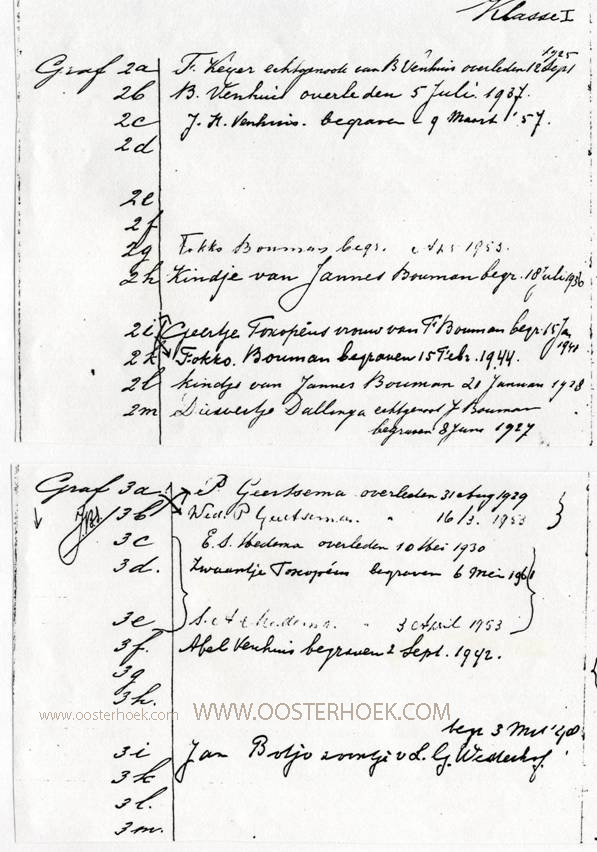 Klasse I
1925
Graf 2a F. Keyer echtgenoote van B Venhuis overleden 12 Sept
2b B. Venhuis overleden 5 Juli 1937.
2c J. H. Venhuis. begraven 9 Maart '57.
2d
2e
2f
2g Fokko Bouman begr. 1953.
2h Kindje van Jannes Bouman begr. 18 Juli 1930
2i Geertje Toxopéus vrouw van F Bouman begr. 15 Jan
1941
2k Fokko. Bouman begraven 15 Febr. 1944.
2l kindje van Jannes Bouman 21 Januari 1928
2m Dievertje Dallinga echtgenoot J Bouman
begraven 8 Juni 1927
Graf 3a P Geertsema overleden 31 Aug 1929
3b Wed. P Geertsema. " 16/3. 1953
3c E. S. Wedema overleden 10 Mei 1930
3d. Zwaantje Toxopéus begraven 6 Mei 1961
3e " 3 April 1953
3f. Abel Venhuis begraven 2 Sept. 1942.
3g
3h.
www.oosterhoek.com WWW.OOSTERHOEK.COM
begr 3 Mrt
3i Jan Botjo zoontje v L. G. Westerhof.
3k
3l.
3m.